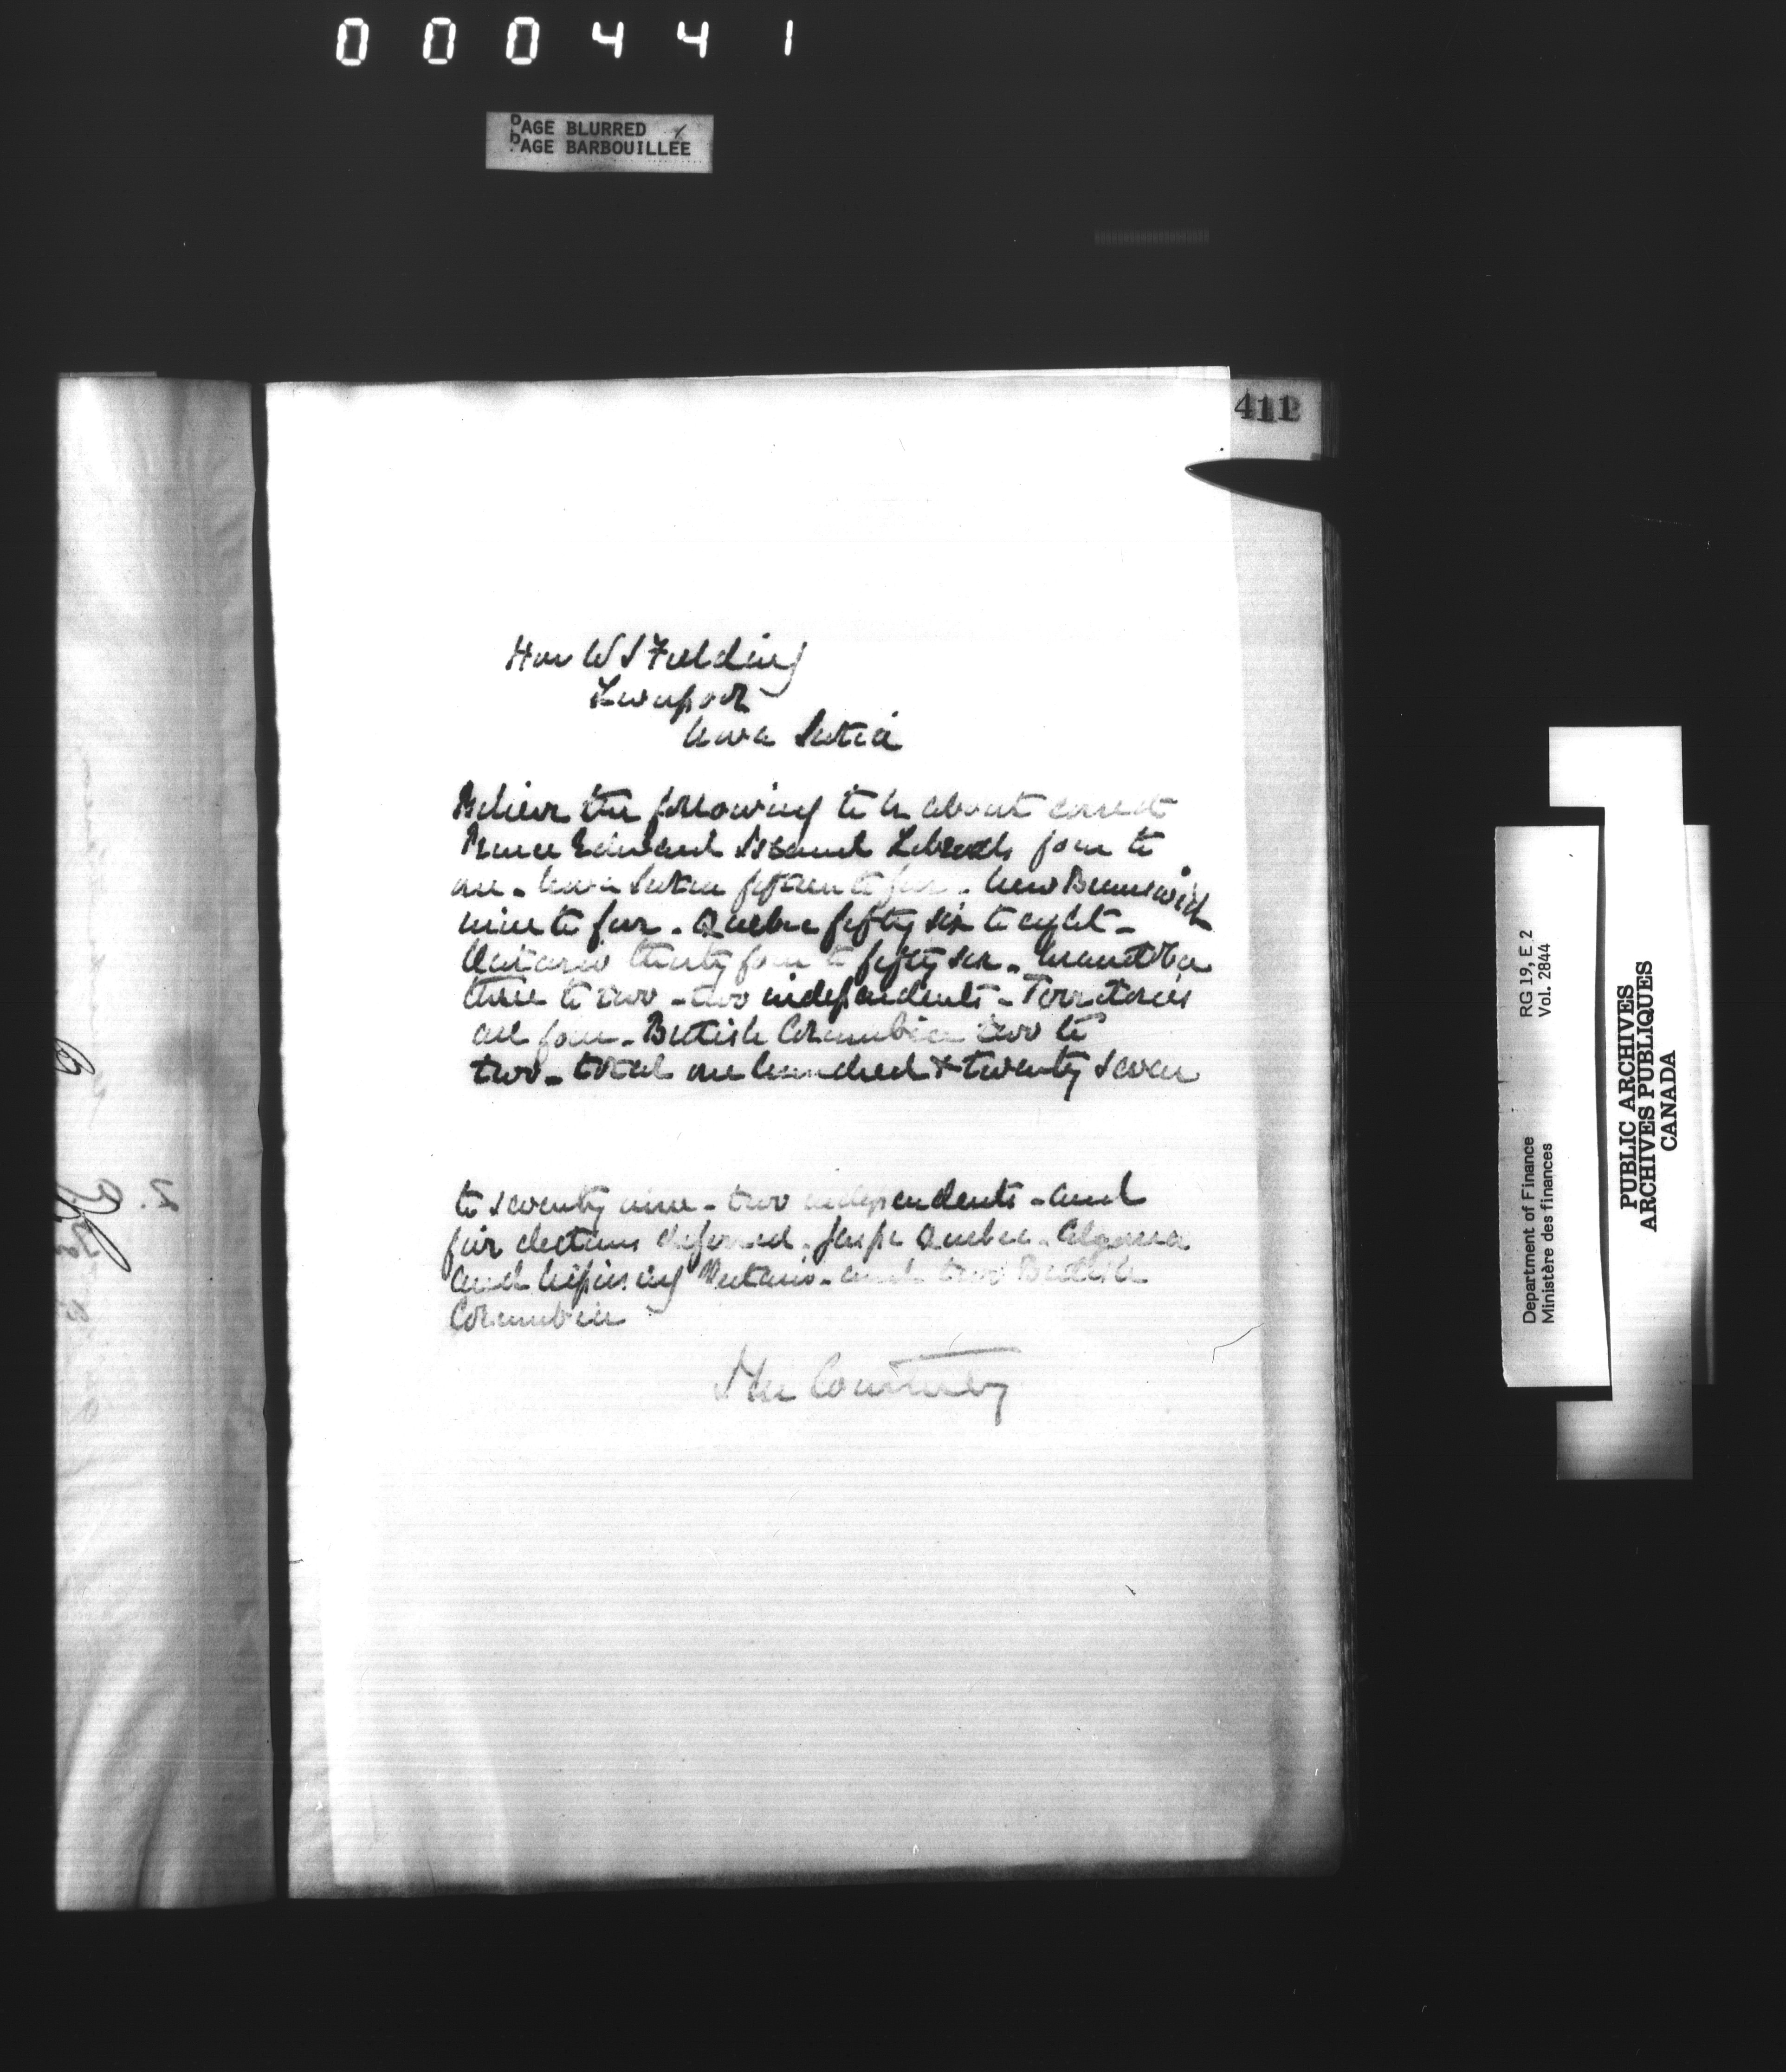 000441
PAGE BLURRED
PAGE BARBOUILLÉE
411
Hon W S Fielding
Liverpool
Nova Scotia
Believe the following to be about correct
Prince Edward Island Liberals four to
one - Nova Scotia fifteen to five - New Brunswick
nine to five - Quebec fifty six to eight -
Ontario thirty four to fifty six - Manitoba
three to two - two independents - Territories
all four - British Columbia two to
two - total one hundred & twenty seven
to seventy nine - two independents - and
five elections deferred - Gaspe Quebec - Algoma
and Nipissing Ontario - and two British
Columbia
J M Courtney
RG 19, E 2
Vol. 2844
Department of Finance
Ministère des finances
PUBLIC ARCHIVES
ARCHIVES PUBLIQUES
CANADA